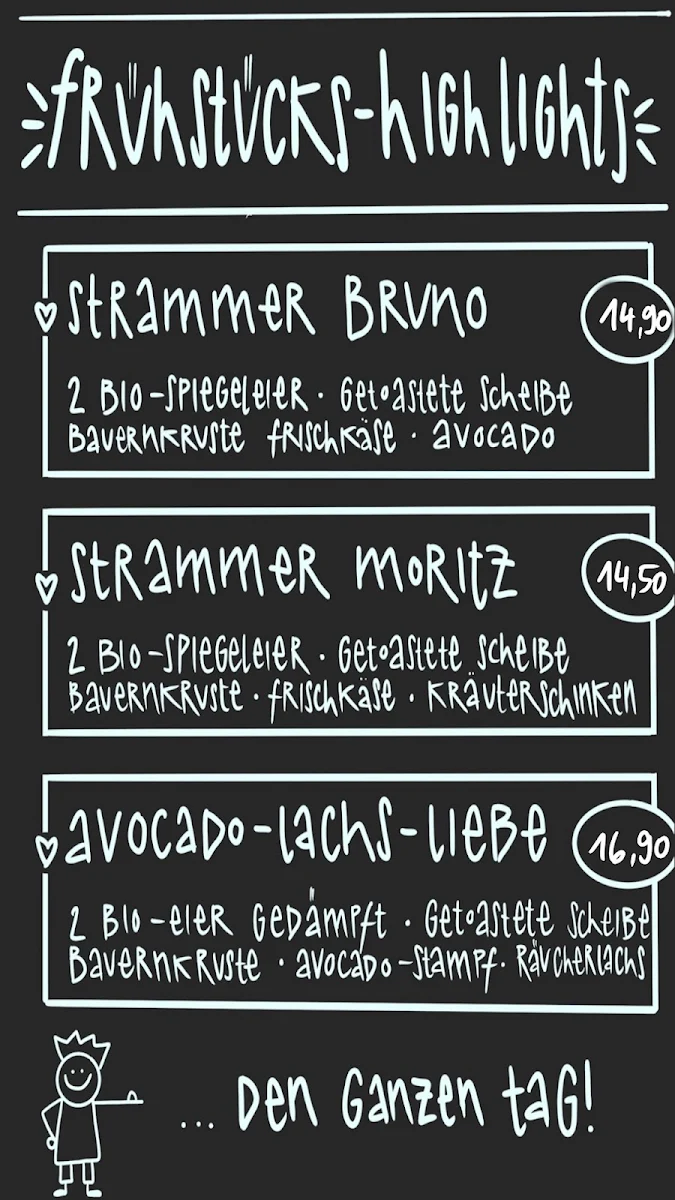 FRÜHSTÜCKS-HIGHLIGHTS
STRAMMER BRUNO
14,90
2 BIO-SPIEGELEIER · GETOASTETE SCHEIBE
BAUERNKRUSTE FRISCHKÄSE · AVOCADO
STRAMMER MORITZ
14,50
2 BIO-SPIEGELEIER · GETOASTETE SCHEIBE
BAUERNKRUSTE · FRISCHKÄSE · KRÄUTERSCHINKEN
AVOCADO-LACHS-LIEBE
16,90
2 BIO-EIER GEDÄMPFT · GETOASTETE SCHEIBE
BAUERNKRUSTE · AVOCADO-STAMPF · RÄUCHERLACHS
... DEN GANZEN TAG!